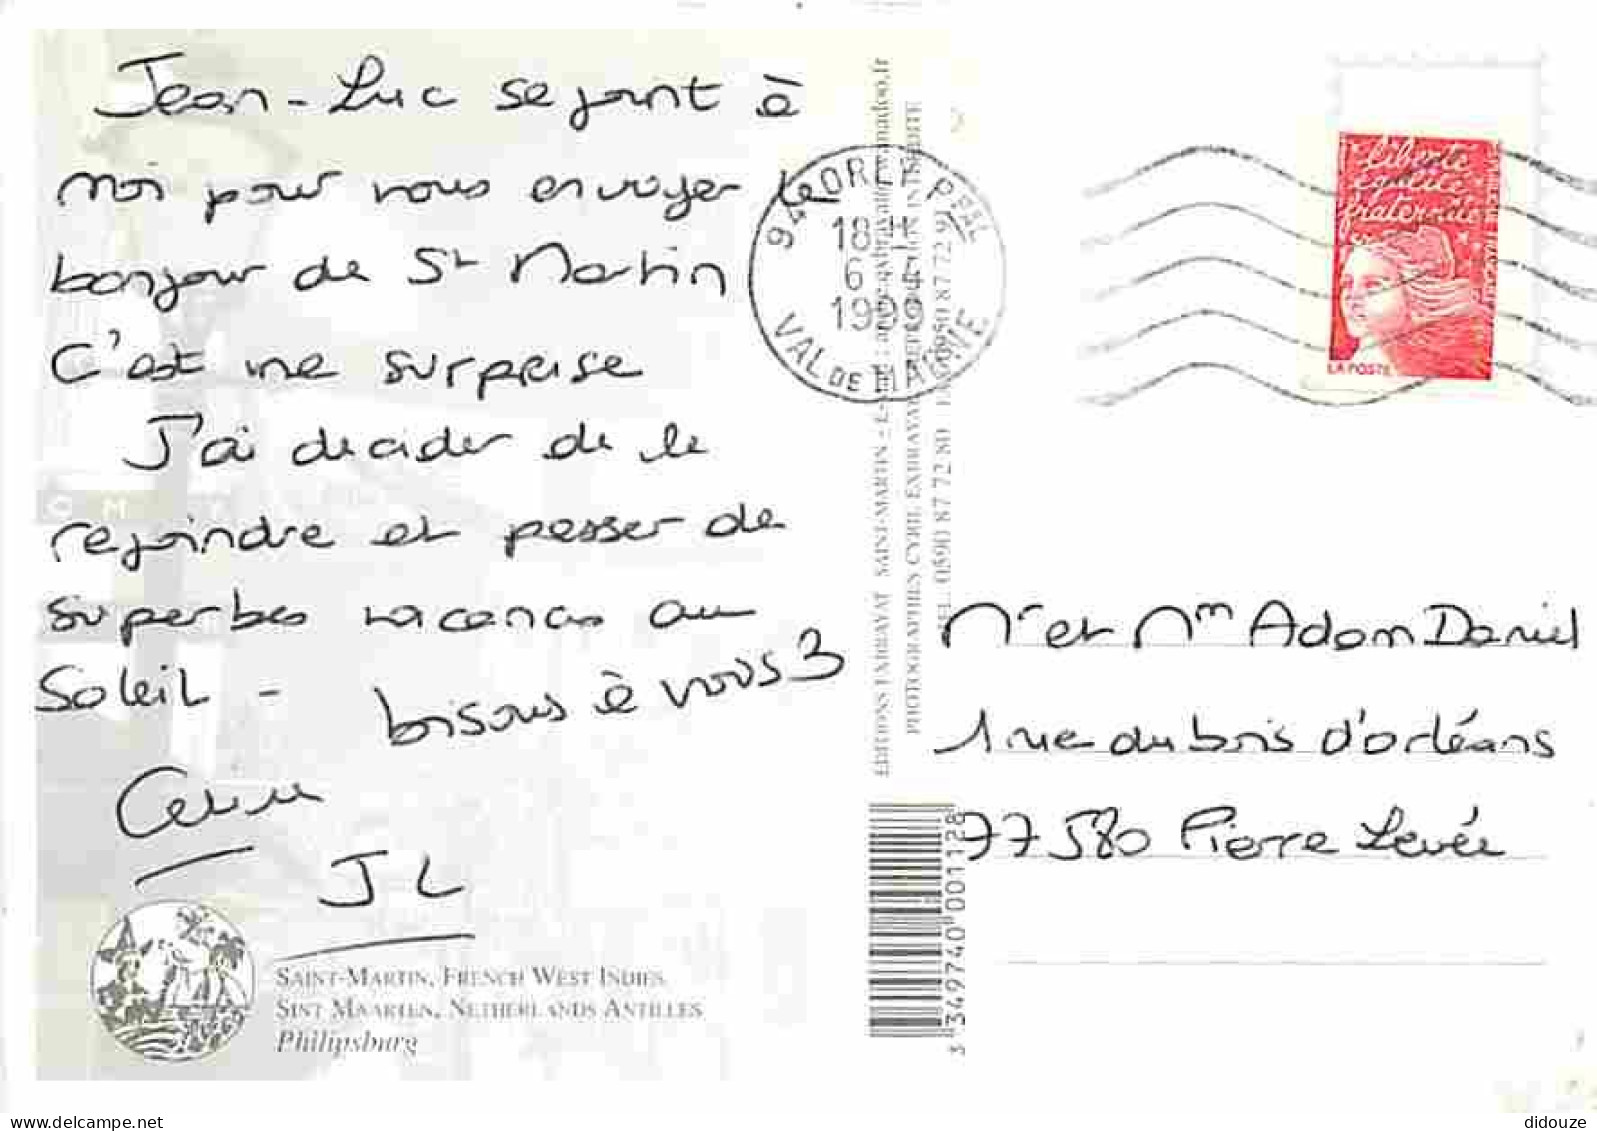 Jean-Luc se joint à
moi pour vous envoyer le
bonjour de St Martin
C'est une surprise
J'ai decider de le
rejoindre et passer de
superbes vacances au
Soleil -
bisous à vous 3
Celine
JL
SAINT-MARTIN, FRENCH WEST INDIES
SINT MAARTEN, NETHERLANDS ANTILLES
Philipsburg
94 ORLY PPAL
18 H
6
1999
VAL DE MARNE
liberté
égalité
fraternité
LA POSTE
EDITIONS EXBRAYAT SAINT-MARTIN
PHOTOGRAPHIES CYRIL EXBRAYAT
TEL. 0590 87 72 80
0590 87 72 91
Mr et Mm Adam Daniel
1 rue du bois d'orléans
77580 Pierre Levée
3 349740 001128
didouze